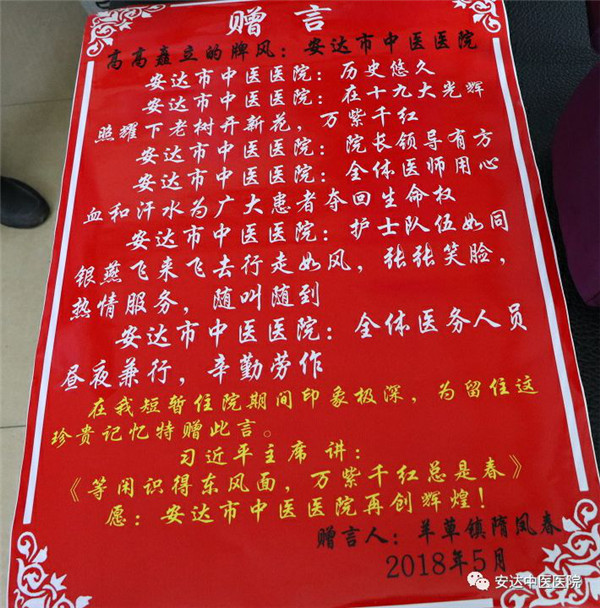 赠言
高高矗立的牌风：安达市中医医院
安达市中医医院：历史悠久
安达市中医医院：在十九大光辉
照耀下老树开新花，万紫千红
安达市中医医院：院长领导有方
安达市中医医院：全体医师用心
血和汗水为广大患者夺回生命权
安达市中医医院：护士队伍如同
银燕飞来飞去行走如风，张张笑脸，
热情服务，随叫随到
安达市中医医院：全体医务人员
昼夜兼行，辛勤劳作
在我短暂住院期间印象极深，为留住这
珍贵记忆特赠此言。
习近平主席讲：
《等闲识得东风面，万紫千红总是春》
愿：安达市中医医院再创辉煌！
赠言人：羊草镇隋凤春
2018年5月
安达中医医院